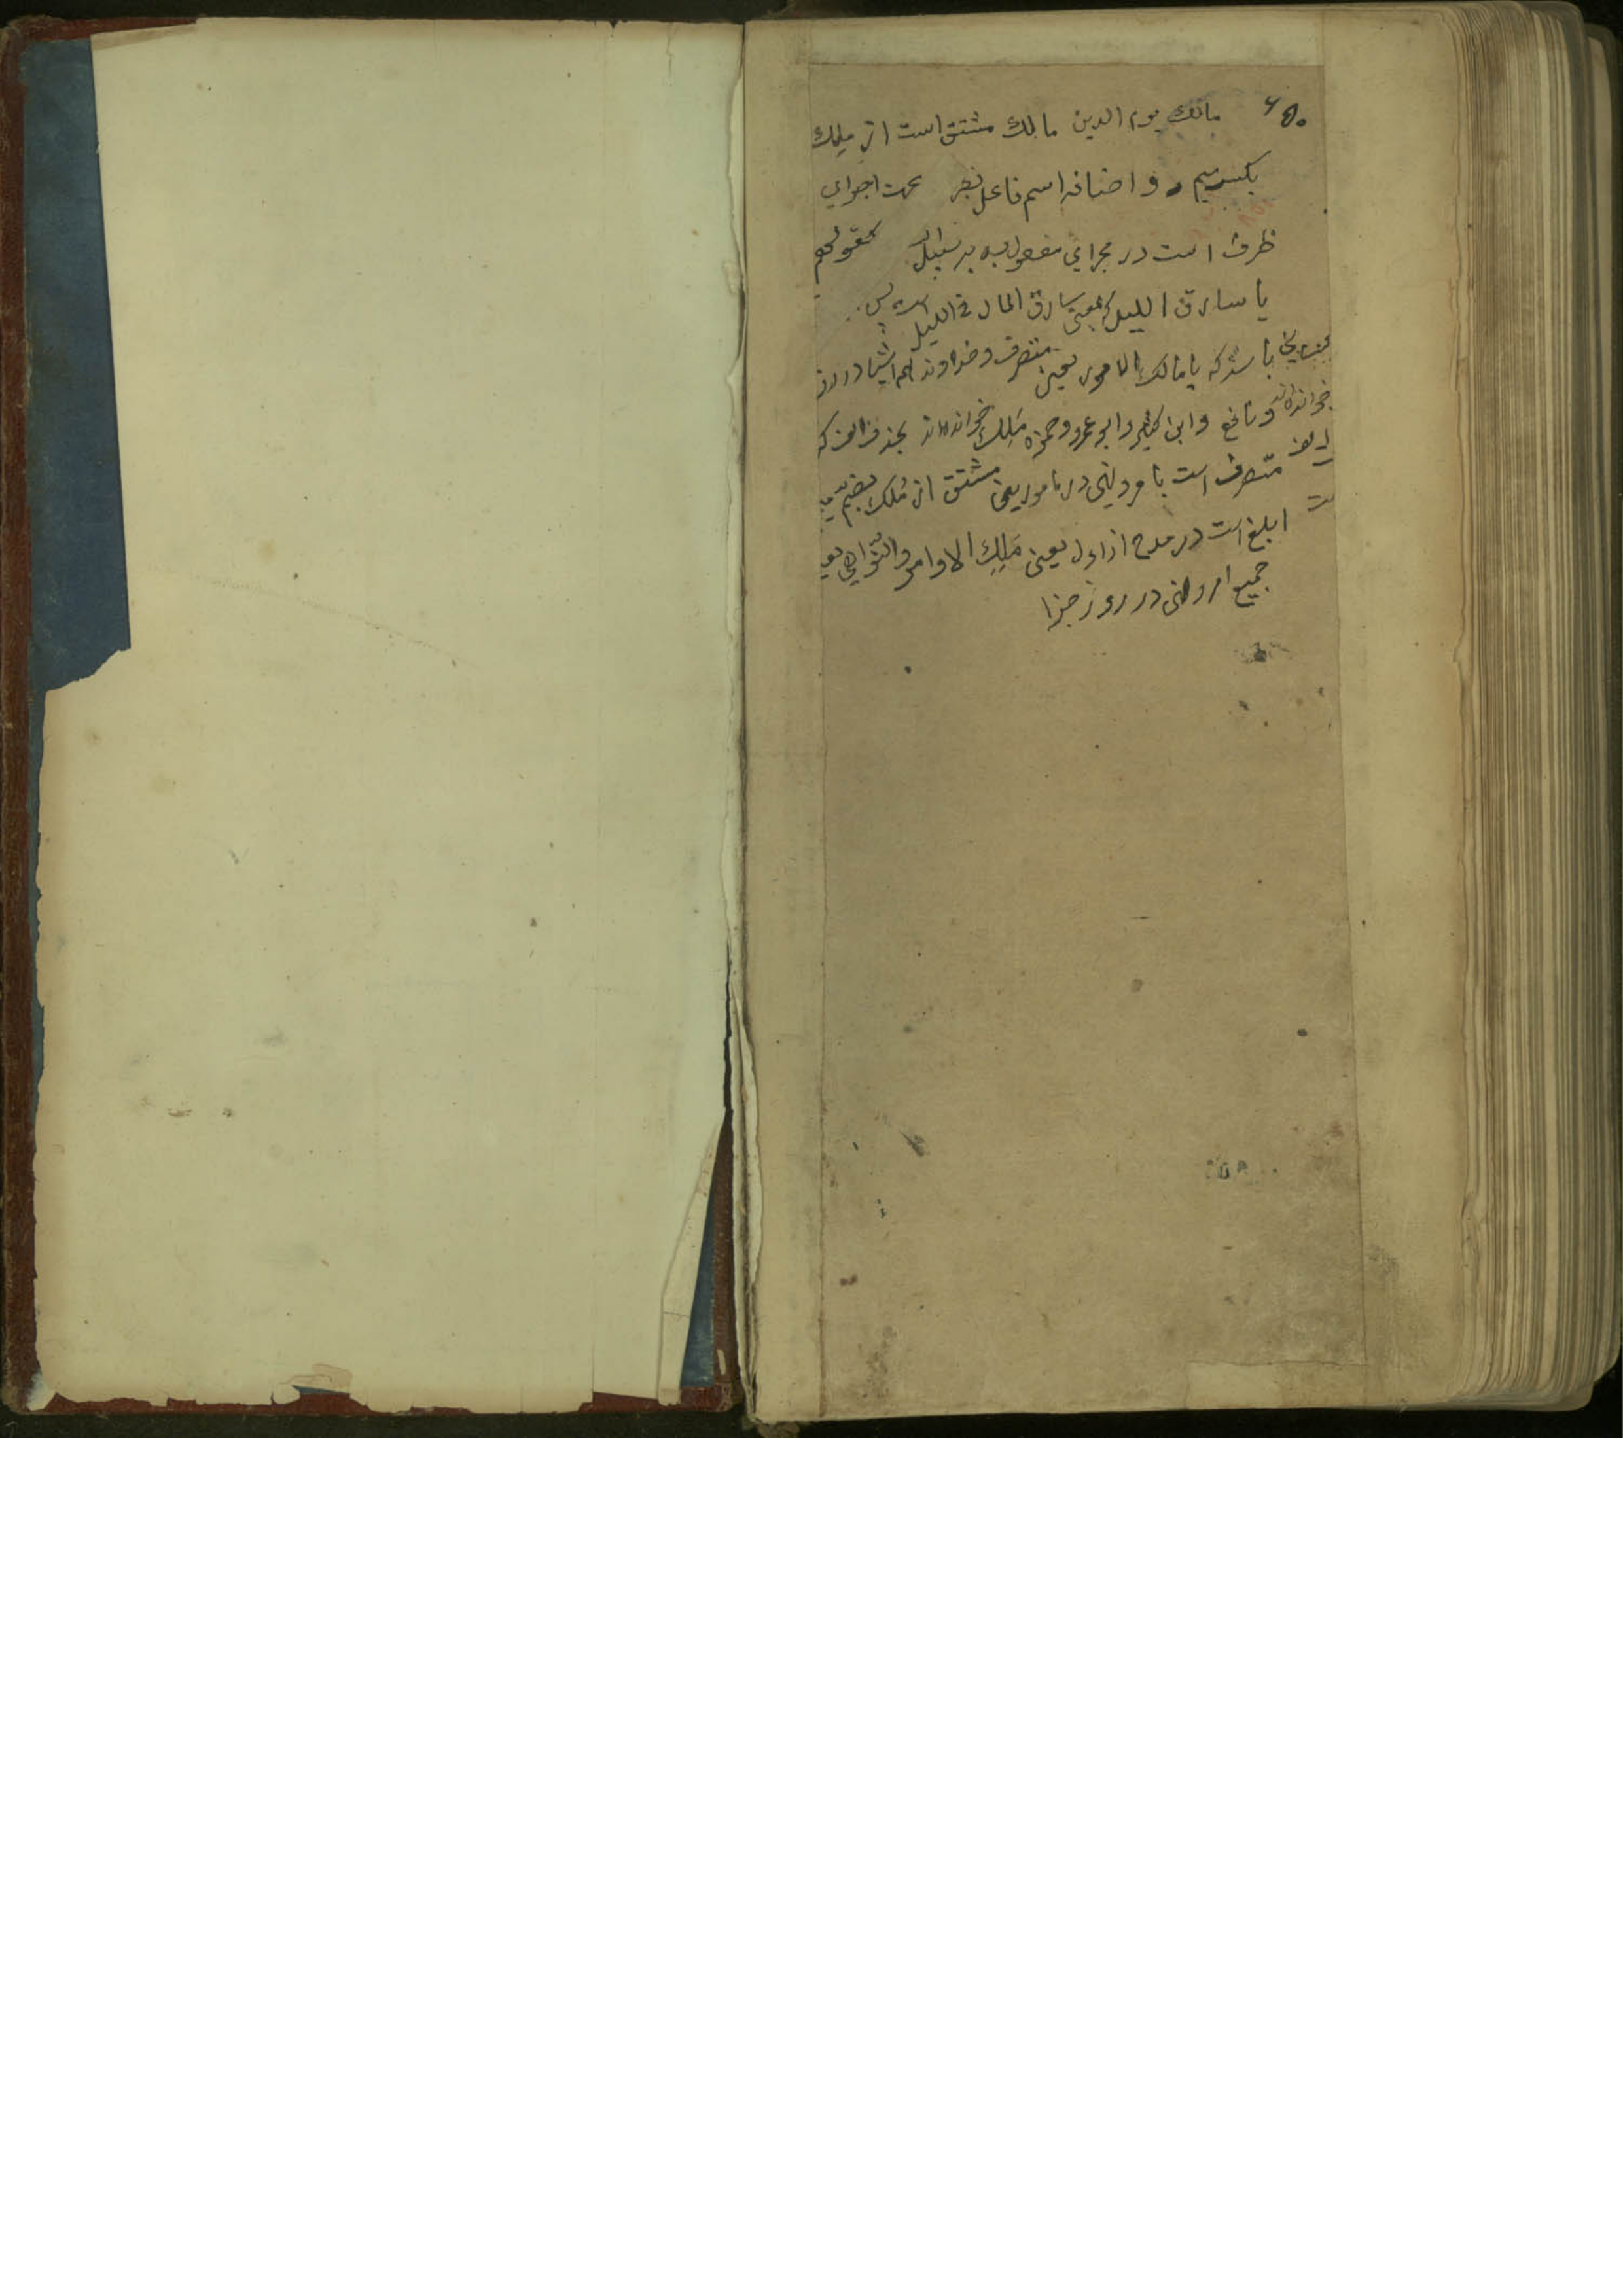 مالك يوم الدين مالك مشتق است از مِلك
بكسر ميم و اضافه اسم فاعل جهت اجراي
ظرف است در مجراي مفعول به بر سبيل كقولهم
يا سارق الليل كه بمعني سارق المال في الليل است پس
باشد كه يا مالك الامور يعني متصرف و خداوند همه اشيا در روز
خوانده‌اند و نافع و ابن كثير و ابو عمرو و حمزه مَلِك خوانده‌اند بحذف الف كه
متصرف است بامر و نهي در مامورين مشتق از مُلك بضم
ابلغ است در مدح از اول يعني مَلِكِ الاوامر والنّواهي
جميع امر و نهي در روز جزا